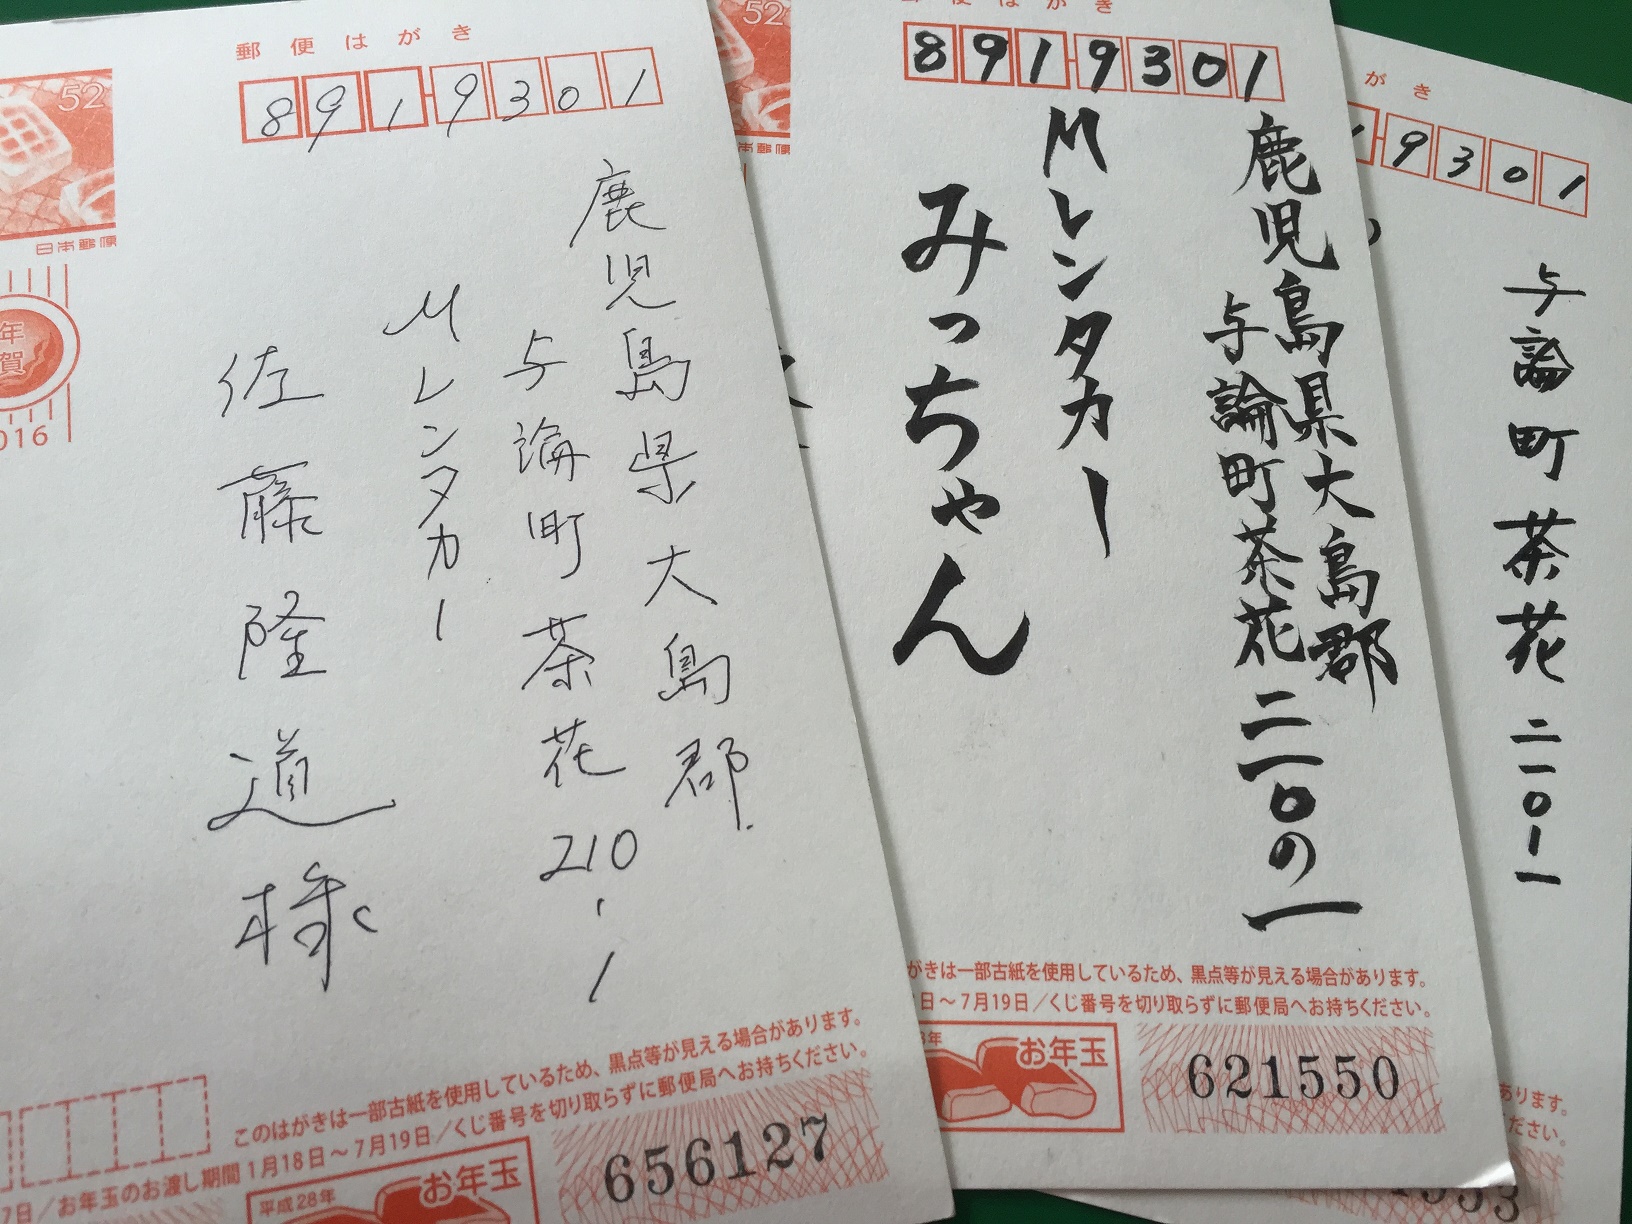 52
日本郵便
年
賀
016
郵便はがき
8919301
鹿児島県大島郡
与論町茶花210-1
Mレンタカー
佐藤隆道様
このはがきは一部古紙を使用しているため、黒点等が見える場合があります。
7日/お年玉のお渡し期間 1月18日~7月19日/くじ番号を切り取らずに郵便局へお持ちください。
平成28年
お年玉
656127
52
郵便はがき
8919301
鹿児島県大島郡
与論町茶花二一〇の一
Mレンタカー
みっちゃん
がきは一部古紙を使用しているため、黒点等が見える場合があります。
日~7月19日/くじ番号を切り取らずに郵便局へお持ちください。
年
お年玉
621550
がき
9301
与論町茶花二一〇-一
あります。
ださい。